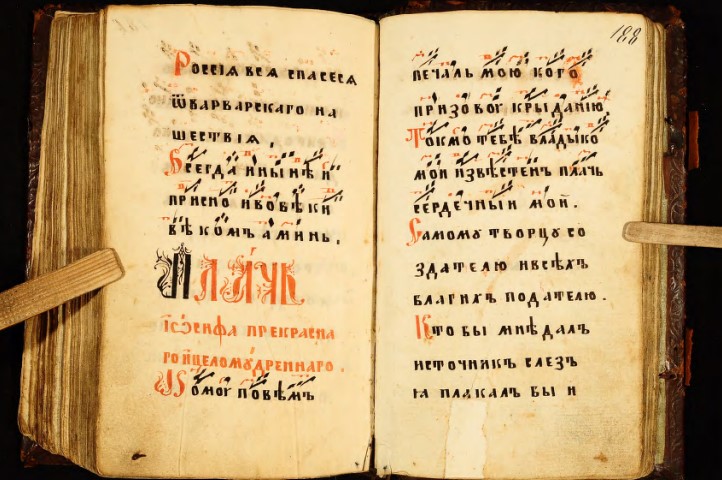 Россїѧ всѧ спасесѧ
ѿварварскаго на
шествїѧ.
Всегда инынѣ и
присно ивовѣки
вѣкомъ аминь.
Плачь
Їѡсифа прекрасна
го ицеломꙋдреннаго.
Комоу повѣмъ
188
печаль мою кого
призовоу крыданию
Токмо тебѣ владыко
мой извѣстенъ плачь
сердечный мой.
Самому творцу со
здателю ивсѣхъ
благихъ подателю.
Кто бы мнѣ далъ
источникъ слезъ
ꙗ плакалъ бы и